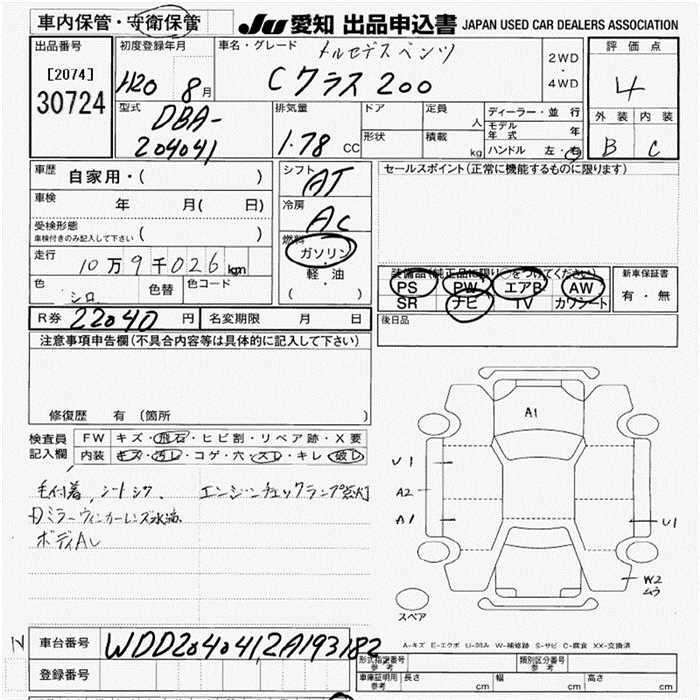 車内保管・守衛保管
JU 愛知 出品申込書 JAPAN USED CAR DEALERS ASSOCIATION
出品番号
[2074]
30724
初度登録年月
H20 8月
車名・グレード
メルセデスベンツ
Cクラス 200
2WD
・
4WD
評価点
4
外装 内装
B C
型式
DBA-
204041
排気量
1.78 CC
ドア
形状
定員 人
積載 kg
ディーラー・並行
モデル年式 年
ハンドル 左・右
車歴 自家用・( )
車検 年 月( 日)
受検形態
車検付きのみ記入して下さい ( )
走行 10万9千026km
色 シロ 色替 色コード
シフト AT
冷房 AC
燃料
ガソリン
・
軽・油
( )
セールスポイント(正常に機能するものに限ります)
装備品(純正品に限り○をつけてください)
PS PW エアB AW
SR ナビ TV カワシート
新車保証書
有・無
R券 22040 円 名変期限 月 日
後日品
注意事項申告欄(不具合内容等は具体的に記入して下さい)
修復歴 有(箇所 )
検査員記入欄
FW キズ・飛石・ヒビ割・リペア跡・X要
内装 キズ・汚レ・コゲ・穴・スレ・キレ・破レ
毛付着, シートシワ エンジンチェックランプ点灯
ミラーウィンカーレンズ水滴
ボディAし
A1
U1
A2
A1
U1
W2
ムラ
スペア
A-キズ E-エクボ U-凹み W-補修跡 S-サビ C-腐食 XX-交換済
N
車台番号 WDD2040412A193182
登録番号
形式指定番号 参考
類別区分番号 参考
車庫証明用 参考 長さ cm 幅 cm 高さ cm